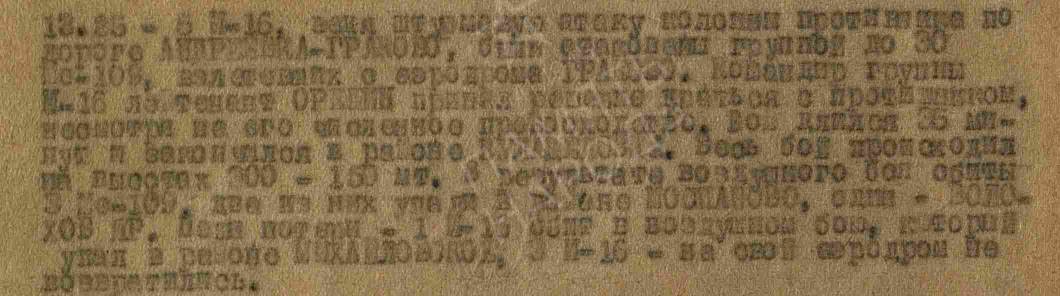 13.25 - 8 И-16, ведя штурмовую атаку колонны противника по
дороге АНДРЕЕВКА-ГРАКОВО, были атакованы группой до 30
Ме-109, взлетевших с аэродрома ГРАКОВО. Командир группы
И-16 лейтенант ОРЕШИН принял решение драться с противником,
несмотря на его численное превосходство. Бой длился 35 ми-
нут и закончился в районе . Весь бой происходил
на высотах 300 - 150 мт. В результате воздушного боя сбиты
3 Ме-109, два из них упали в районе МОСПАНОВО, один - ВОЛО-
ХОВ ЯР. Наши потери - 1 И-16 сбит в воздушном бою, который
упал в районе МИХАЙЛОВСКОЕ, 3 И-16 - на свой аэродром не
возвратились.